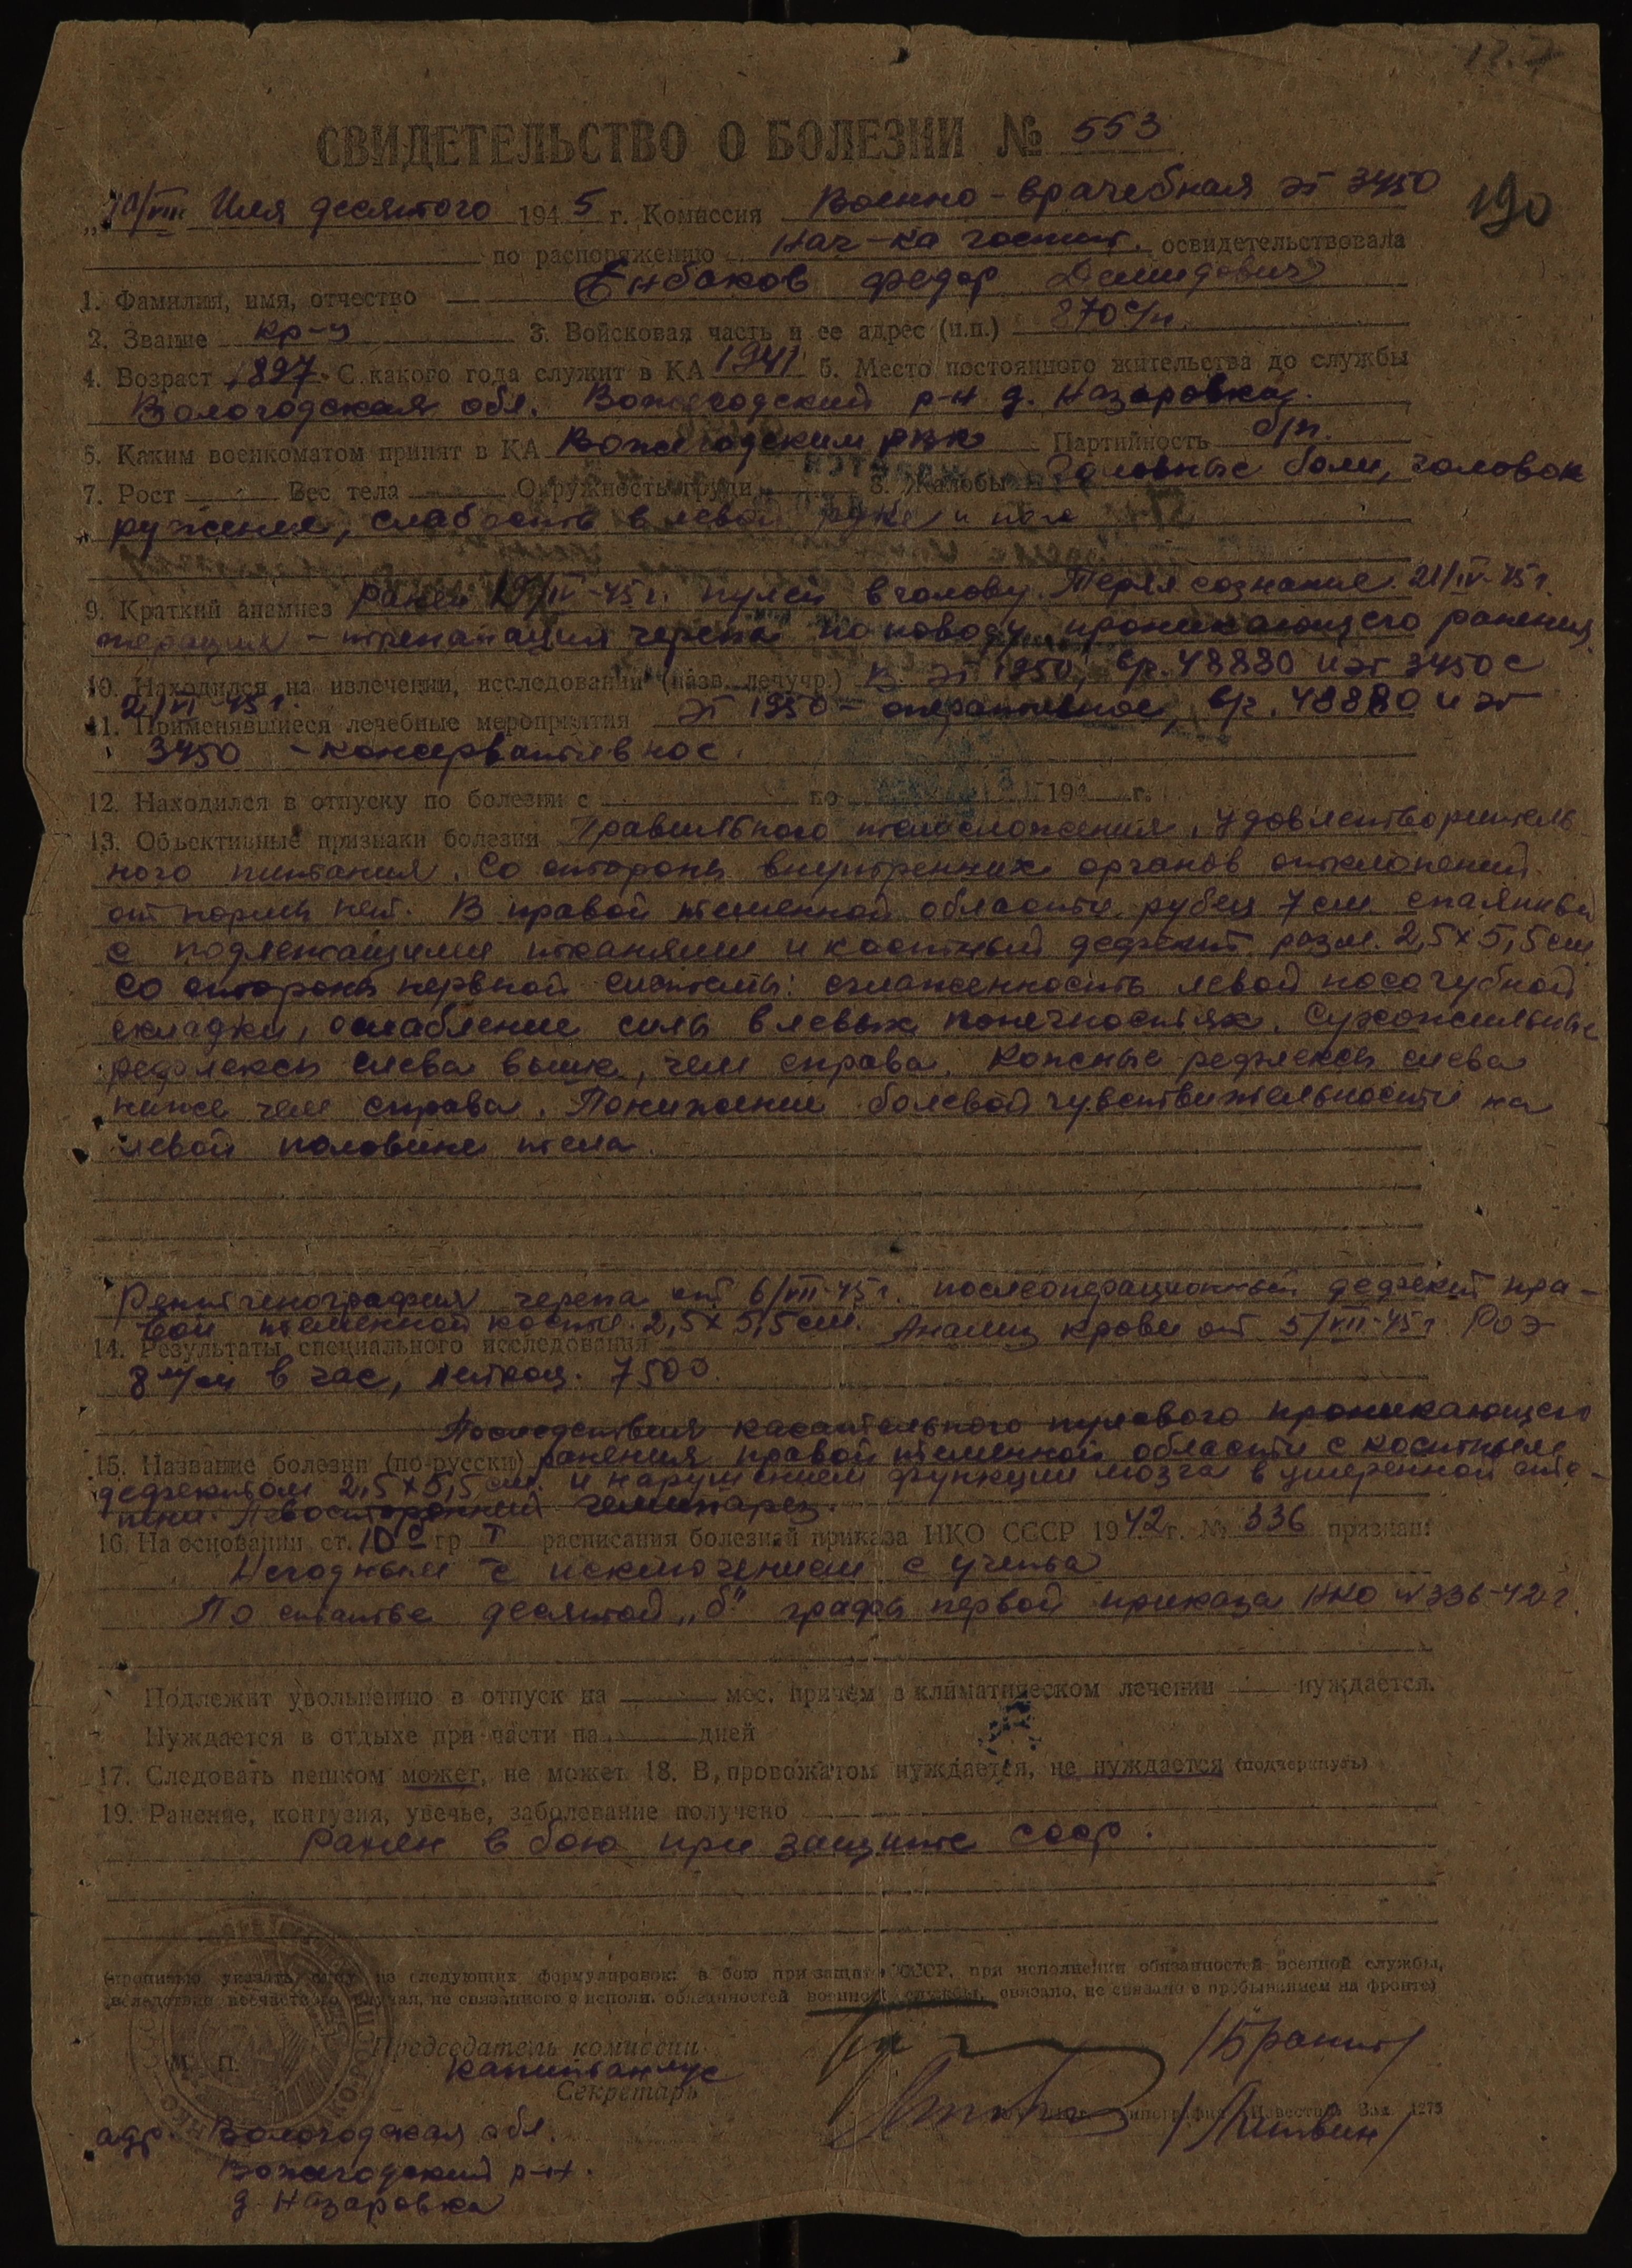 СВИДЕТЕЛЬСТВО О БОЛЕЗНИ № 553
190
десятого 1945 г. Комиссия Военно-врачебная ЭГ 3450
по распоряжению Нач-ка госпит. освидетельствовала
1. Фамилия, имя, отчество Енбаков Федор Демидович
2. Звание кр-ц 3. Войсковая часть и ее адрес (н.п.) 870 с/п.
4. Возраст 1897. С какого года служит в КА 1941 5. Место постоянного жительства до службы
Вологодская обл. Вожегодский р-н д. Назаровка.
6. Каким военкоматом принят в КА Вожегодским РВК Партийность б/п.
7. Рост Вес тела Окружность груди 8. Жалобы Головные боли, головок
ружения, слабость в левой руке и ноге
9. Краткий анамнез Ранен 19/IV-45г. пулей в голову. Терял сознание. 21/IV-45г.
операция - трепанация черепа по поводу проникающего ранения
10. Находился на излечении, исследовании (назв. лечучр.) В ЭГ 1950, в/ч. 48880 и ЭГ 3450 с
2/VI-45г.
11. Применявшиеся лечебные мероприятия ЭГ 1950 - оперативное, в/ч. 48880 и ЭГ
3450 - консервативное.
12. Находился в отпуску по болезни с по 194 г.
13. Объективные признаки болезни Правильного телосложения, удовлетворитель
ного питания. Со стороны внутренних органов отклонений
от нормы нет. В правой теменной области рубец 7 см спаянный
с подлежащими тканями и костный дефект разм. 2,5 х 5,5 см
Со стороны нервной системы: сглаженность левой носогубной
складки, ослабление силы в левых конечностях. Сухожильные
рефлексы слева выше, чем справа. Кожные рефлексы слева
ниже чем справа. Понижение болевой чувствительности на
левой половине тела.
Рентгенография черепа от 6/VII-45г. послеоперационный дефект пра-
вой теменной кости. 2,5 х 5,5 см. Анализ крови от 5/VII-45г РОЭ
14. Результаты специального исследования
8 м/м в час, лейкоц. 7500.
Последствия касательного пулевого проникающего
15. Название болезни (по-русски) ранения правой теменной области с костным
дефектом 2,5 х 5,5 см. и нарушением функции мозга в умеренной сте-
пени. Левосторонний гемипарез.
16. На основании ст. 10б гр I расписания болезней приказа НКО СССР 1942 г. № 336 признан:
Негодным с исключением с учета
По статье десятой „б" графы первой приказа НКО №336-42г.
Подлежит увольнению в отпуск на мес. причем в климатическом лечении нуждается.
Нуждается в отдыхе при части на дней
17. Следовать пешком может, не может 18. В провожатом нуждается, не нуждается (подчеркнуть)
19. Ранение, контузия, увечье, заболевание получено
Ранен в бою при защите СССР.
(прописью указать одну из следующих формулировок: в бою при защите СССР, при исполнении обязанностей военной службы,
вследствие несчастного случая, не связанного с исполн. обязанностей военной службы, связано, не связано с пребыванием на фронте)
Председатель комиссии
М. П. капитан м/с
Секретарь
Типография Известия Зак. 1275
/Литвин/
адр. Вологодская обл.
Вожегодский р-н.
д. Назаровка